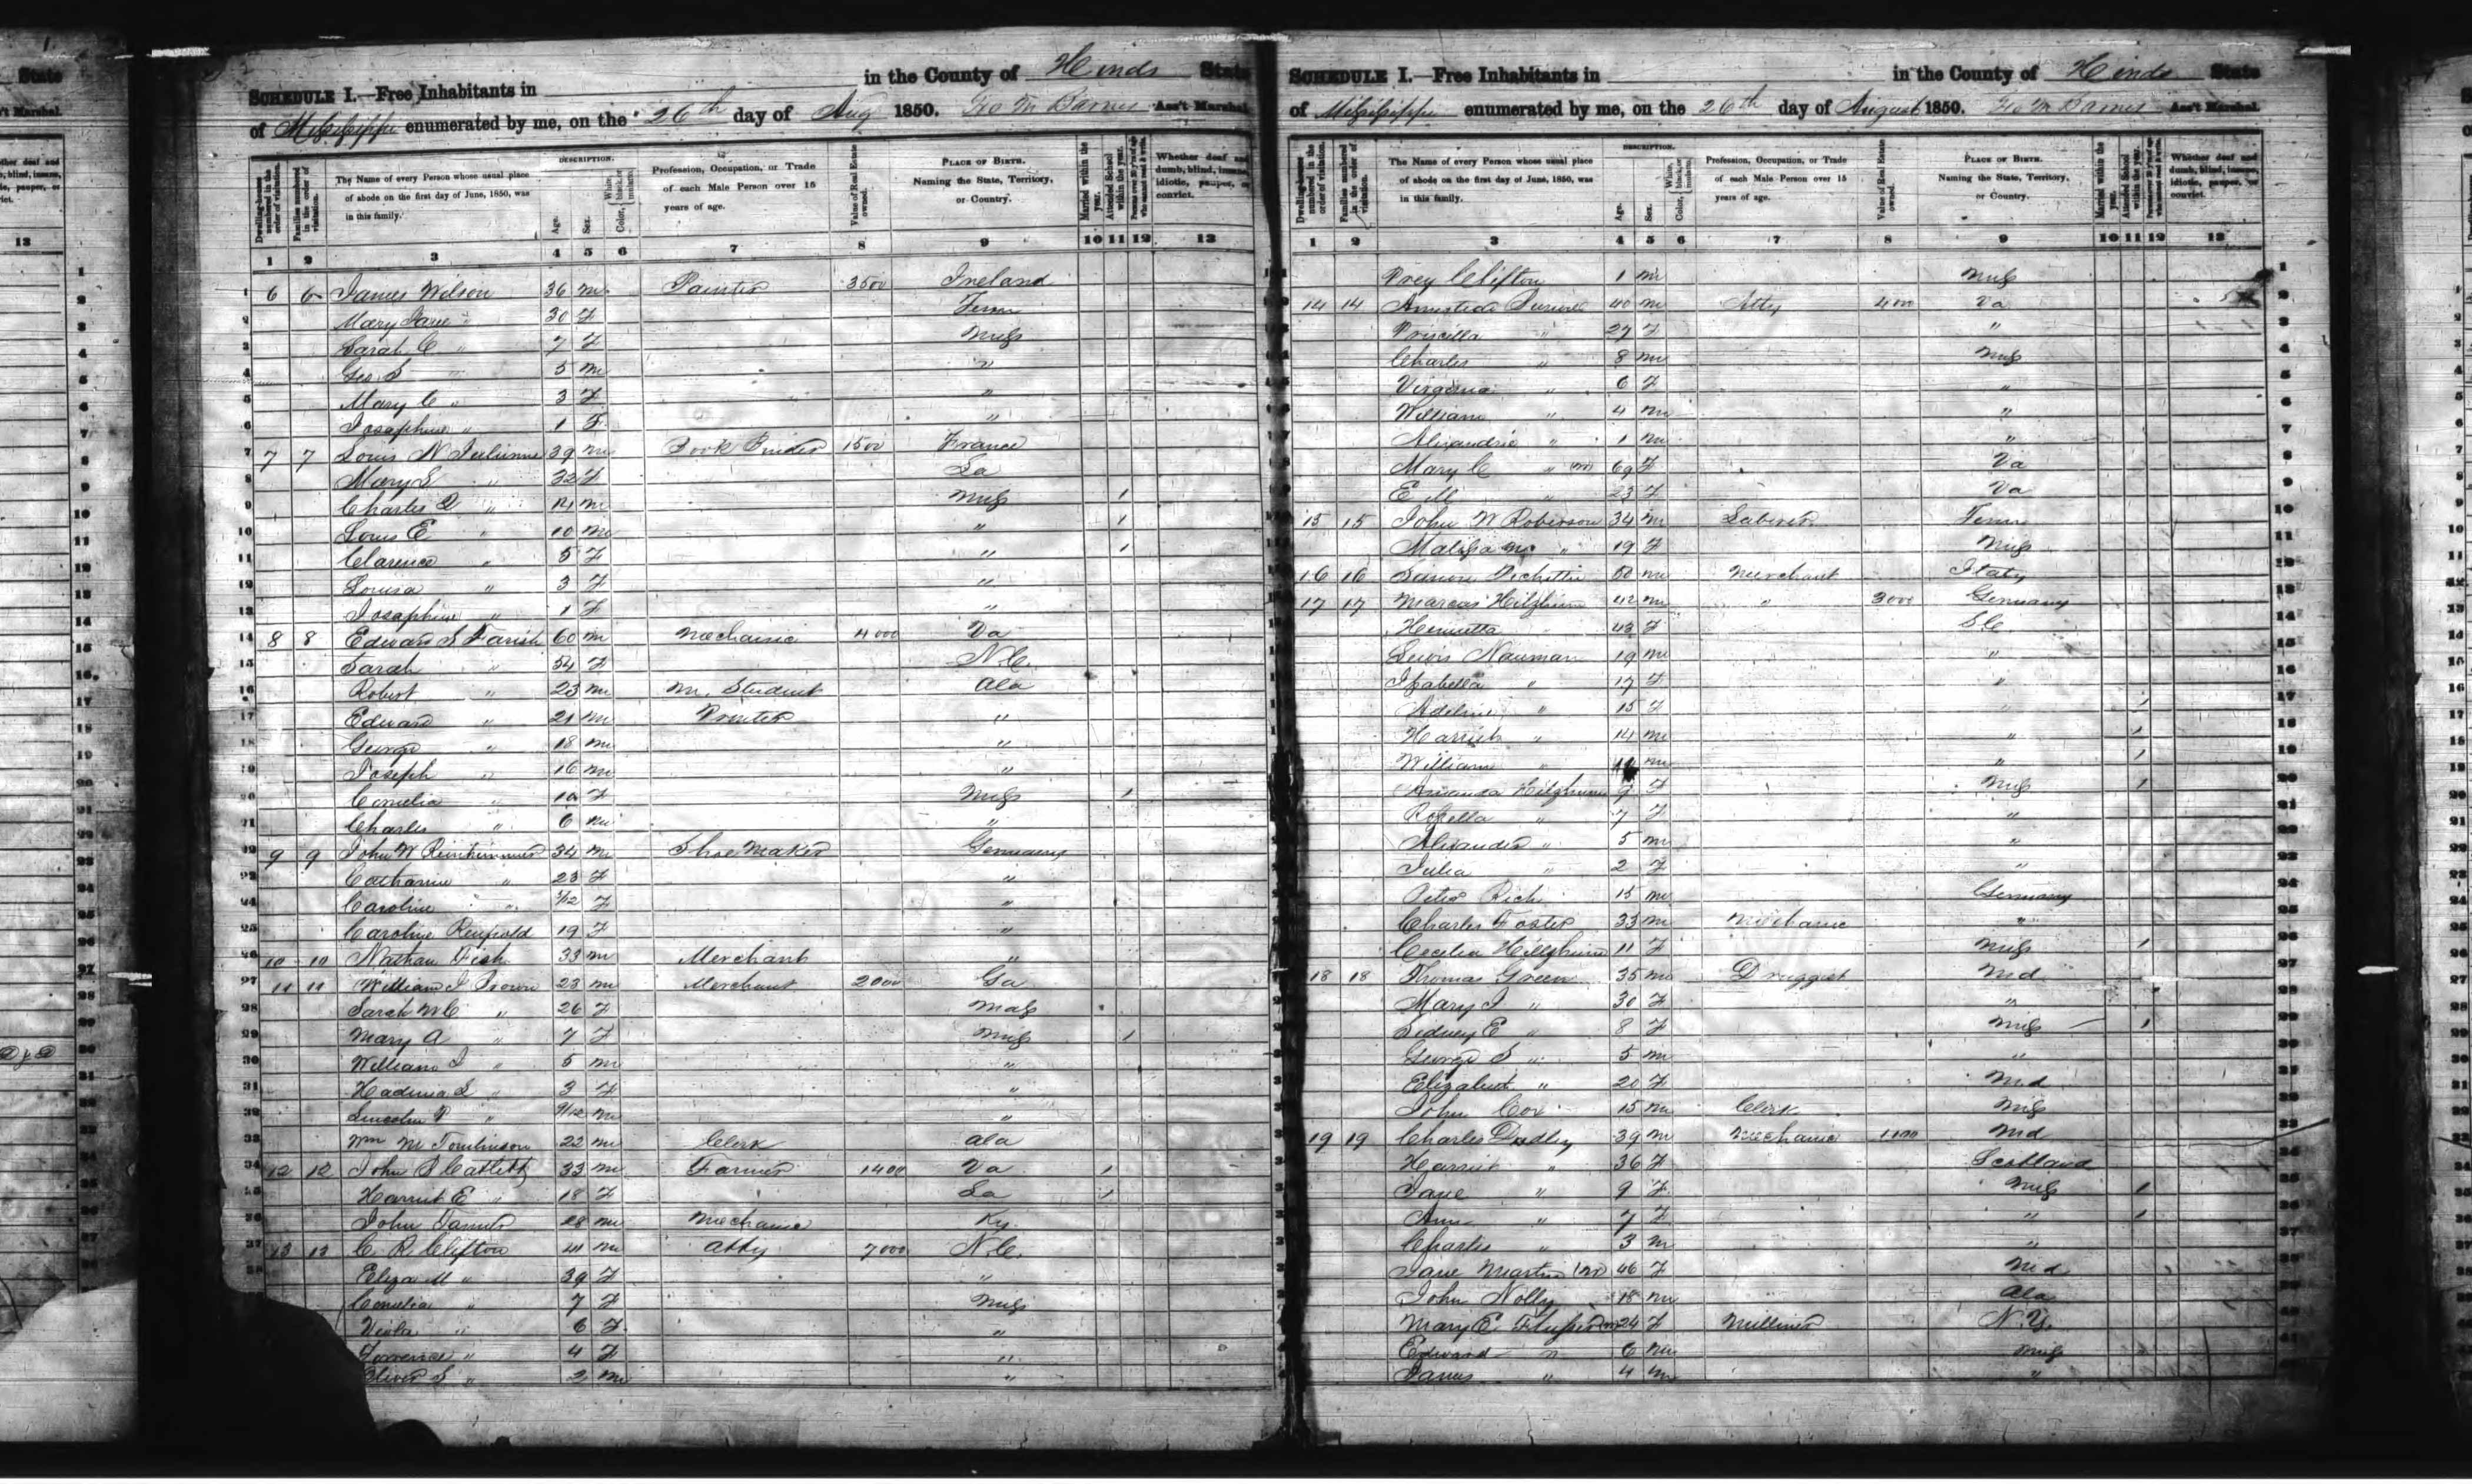 SCHEDULE I.—Free Inhabitants in in the County of Hinds State
of Mississippi enumerated by me, on the 26th day of Aug 1850. Geo M Barnes Ass't Marshal.
DESCRIPTION.
Dwelling-houses numbered in the order of visitation. Families numbered in the order of visitation. The Name of every Person whose usual place of abode on the first day of June, 1850, was in this family. Age. Sex. Color, White, black, or mulatto. Profession, Occupation, or Trade of each Male Person over 15 years of age. Value of Real Estate owned. PLACE OF BIRTH. Naming the State, Territory, or Country. Married within the year. Attended School within the year. Persons over 20 y'rs of age who cannot read & write. Whether deaf and dumb, blind, insane, idiotic, pauper, or convict.
1 2 3 4 5 6 7 8 9 10 11 12 13
1 6 6 James Wilson 36 m Painter 3500 Ireland
2 Mary Jane " 30 F Tenn
3 Sarah C " 7 F Miss
4 Geo S " 5 m "
5 Mary C " 3 F "
6 Josaphine " 1 F "
7 7 7 Louis N Julienne 39 m Book Binder 1500 France
8 Mary S " 32 F La
9 Charles D " 14 m Miss 1
10 Louis E " 10 m " 1
11 Clarence " 5 F " 1
12 Louisa " 3 F "
13 Josaphine " 1 F "
14 8 8 Edward S Farish 60 m Mechanic 4000 Va
15 Sarah " 54 F N.C.
16 Robert " 23 m M. Student Ala
17 Edward " 21 m Printer "
18 George " 18 m "
19 Joseph " 16 m "
20 Cornelia " 10 F Miss 1
21 Charles " 6 m "
22 9 9 John W 34 m Shoe Maker Germany
23 Catharine " 23 F "
24 Caroline " /12 F "
25 Caroline 19 F "
26 10 10 Nathan Fish 33 m Merchant "
27 11 11 William J Brown 23 m Merchant 2000 Ga
28 Sarah M C " 26 F Mass
29 Mary A " 7 F Miss 1
30 William J " 5 m "
31 3 F "
32 Lincoln P " 9/12 m "
33 Wm M Tomlinson 22 m Clerk Ala
34 12 12 John P Catlett 33 m Farmer 1400 Va 1
35 Harriet E " 18 F La 1
36 John 28 m Mechanic Ky.
37 13 13 C. R. Clifton 41 m Atty 7000 N.C.
38 Eliza M " 39 F "
Cornelia " 7 F Miss
Viola " 6 F "
" 4 F "
Oliver S " 2 m "
SCHEDULE I.—Free Inhabitants in in the County of Hinds State
of Mississippi enumerated by me, on the 26th day of August 1850. Geo M Barnes Ass't Marshal.
DESCRIPTION.
Dwelling-houses numbered in the order of visitation. Families numbered in the order of visitation. The Name of every Person whose usual place of abode on the first day of June, 1850, was in this family. Age. Sex. Color, White, black, or mulatto. Profession, Occupation, or Trade of each Male Person over 15 years of age. Value of Real Estate owned. PLACE OF BIRTH. Naming the State, Territory, or Country. Married within the year. Attended School within the year. Persons over 20 y'rs of age who cannot read & write. Whether deaf and dumb, blind, insane, idiotic, pauper, or convict.
1 2 3 4 5 6 7 8 9 10 11 12 13
Clifton 1 m Miss 1
14 14 Armistead Burwell 40 m Atty 400 Va 2
Priscilla " 27 F " 3
Charles " 8 m Miss 4
Virginia " 6 F " 5
William " 4 m " 6
" 1 m " 7
Mary C " 69 F Va 8
E M " 23 F Va 9
15 15 John W Roberson 34 m Laborer Tenn 10
19 F Miss 11
16 16 50 m Merchant Italy 12
17 17 Marcus Hilzheim 42 m " 3000 Germany 13
Henrietta 43 F S.C. 14
Lewis Nauman 19 m " 15
Isabella " 17 F " 16
Adeline " 15 F " 1 17
Harriet " 14 m " 1 18
William " m " 1 19
Amanda Hilzheim 9 F Miss 1 20
Rosella " 7 F " 21
Alexander " 5 m " 22
Julia " 2 F " 23
Peter Rich 15 m Germany 24
Charles Foster 33 m Mechanic " 25
Cecelia Hilzheim 11 F Miss 1 26
18 18 Thomas Green 35 m Druggist Md 27
Mary J " 30 F " 28
Sidney E " 8 F Miss 1 29
George S " 5 m " 30
Elizabeth " 20 F Md 31
John Cox 15 m Clerk Miss 32
19 19 Charles Dudley 39 m Mechanic 1100 Md 33
Harriet " 36 F Scotland
Jane " 9 F Miss 1
Ann " 7 F " 1
Charles " 3 m "
Jane Martin 46 F Md
John Nolly 18 m Ala
Mary E 24 F Milliner N.Y.
Edward " 6 m Miss
James " 4 m "